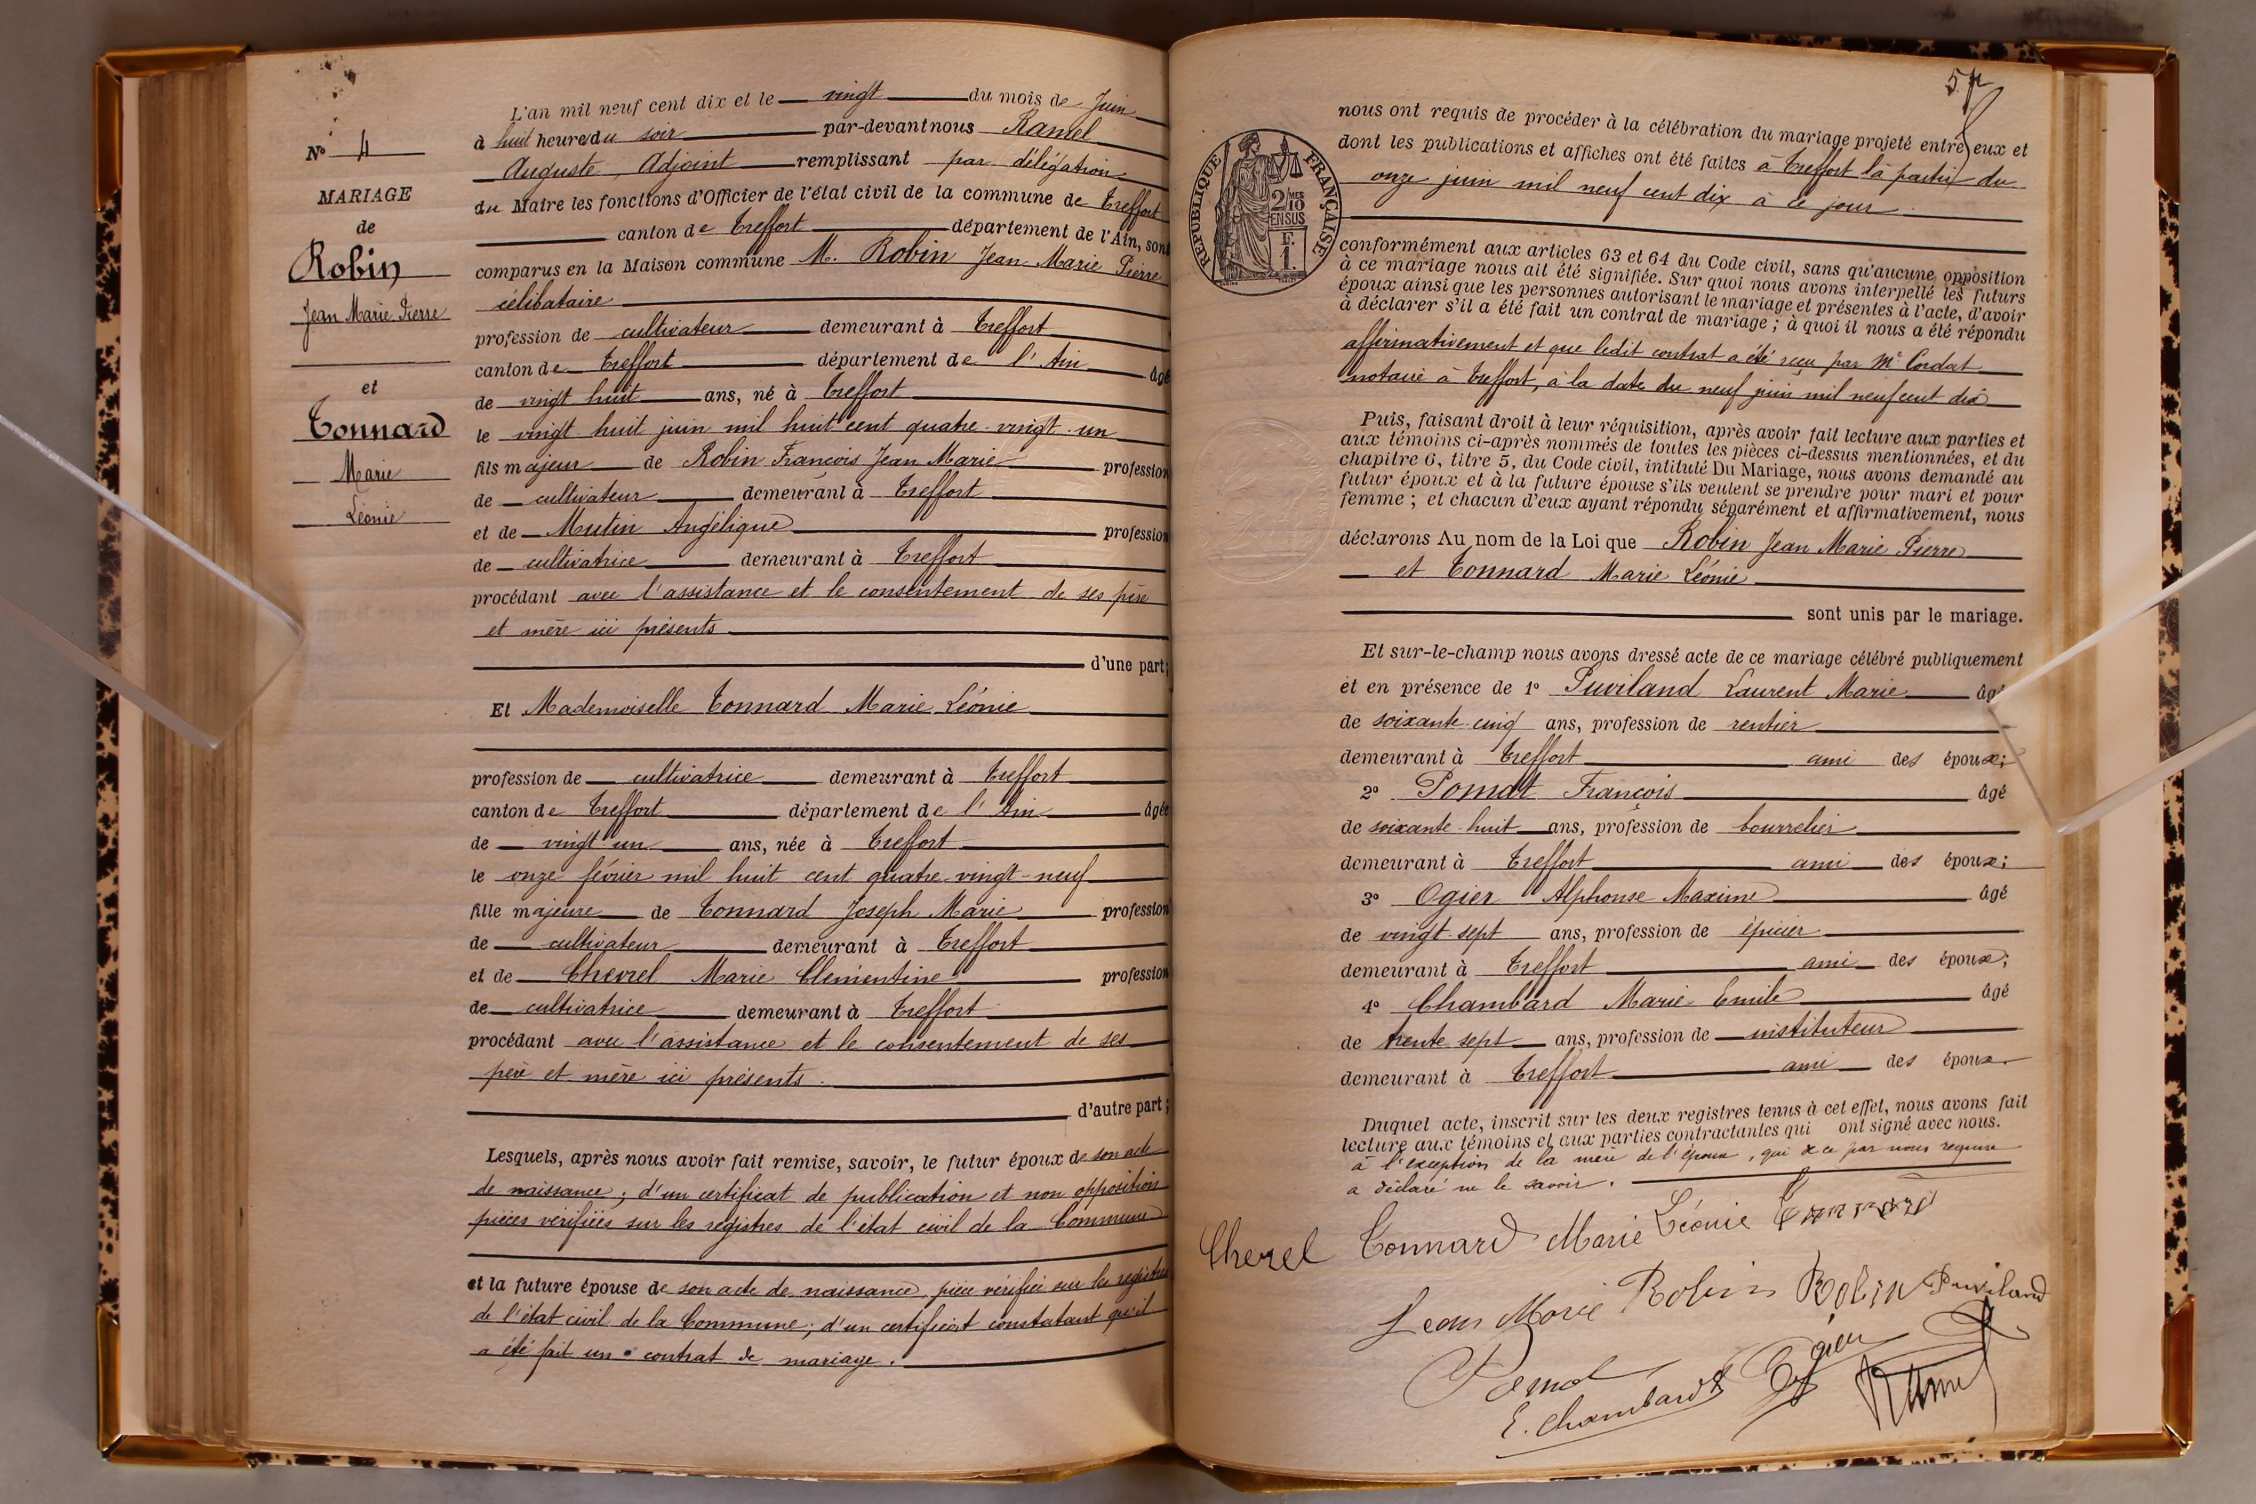 N° 4
MARIAGE
de
Robin
Jean Marie Pierre
et
Tonnard
Marie
Léonie
L'an mil neuf cent dix et le vingt du mois de Juin
à huit heures du soir par-devant nous Ramel
Auguste, Adjoint remplissant par délégation
du Maire les fonctions d'Officier de l'état civil de la commune de Treffort
canton de Treffort département de l'Ain, sont
comparus en la Maison commune M. Robin Jean Marie Pierre
célibataire
profession de cultivateur demeurant à Treffort
canton de Treffort département de l'Ain âgé
de vingt huit ans, né à Treffort
le vingt huit juin mil huit cent quatre-vingt-un
fils majeur de Robin François Jean Marie profession
de cultivateur demeurant à Treffort
et de Mutin Angélique profession
de cultivatrice demeurant à Treffort
procédant avec l'assistance et le consentement de ses père
et mère ici présents
d'une part;
Et Mademoiselle Tonnard Marie Léonie
profession de cultivatrice demeurant à Treffort
canton de Treffort département de l'Ain âgée
de vingt un ans, née à Treffort
le onze février mil huit cent quatre-vingt-neuf
fille majeure de Tonnard Joseph Marie profession
de cultivateur demeurant à Treffort
et de Chevrel Marie Clémentine profession
de cultivatrice demeurant à Treffort
procédant avec l'assistance et le consentement de ses
père et mère ici présents.
d'autre part;
Lesquels, après nous avoir fait remise, savoir, le futur époux de son acte
de naissance; d'un certificat de publication et non opposition
pièces vérifiées sur les registres de l'état civil de la Commune
et la future épouse de son acte de naissance, pièce vérifiée sur les registres
de l'état civil de la Commune; d'un certificat constatant qu'il
a été fait un contrat de mariage.
RÉPUBLIQUE FRANÇAISE
2/10 MES
EN SUS
F.
1.
nous ont requis de procéder à la célébration du mariage projeté entre eux et
dont les publications et affiches ont été faites à Treffort à partir du
onze juin mil neuf cent dix à ce jour
conformément aux articles 63 et 64 du Code civil, sans qu'aucune opposition
à ce mariage nous ait été signifiée. Sur quoi nous avons interpellé les futurs
époux ainsi que les personnes autorisant le mariage et présentes à l'acte, d'avoir
à déclarer s'il a été fait un contrat de mariage; à quoi il nous a été répondu
affirmativement et que ledit contrat a été reçu par Me Cordat
notaire à Treffort, à la date du neuf juin mil neuf cent dix
Puis, faisant droit à leur réquisition, après avoir fait lecture aux parties et
aux témoins ci-après nommés de toutes les pièces ci-dessus mentionnées, et du
chapitre 6, titre 5, du Code civil, intitulé Du Mariage, nous avons demandé au
futur époux et à la future épouse s'ils veulent se prendre pour mari et pour
femme; et chacun d'eux ayant répondu séparément et affirmativement, nous
déclarons Au nom de la Loi que Robin Jean Marie Pierre
et Tonnard Marie Léonie
sont unis par le mariage.
Et sur-le-champ nous avons dressé acte de ce mariage célébré publiquement
et en présence de 1° Puviland Laurent Marie âgé
de soixante-cinq ans, profession de rentier
demeurant à Treffort ami des époux;
2° Pomat François âgé
de soixante-huit ans, profession de bourrelier
demeurant à Treffort ami des époux;
3° Ogier Alphonse Maxime âgé
de vingt-sept ans, profession de épicier
demeurant à Treffort ami des époux;
4° Chambard Marie Emile âgé
de trente sept ans, profession de instituteur
demeurant à Treffort ami des époux.
Duquel acte, inscrit sur les deux registres tenus à cet effet, nous avons fait
lecture aux témoins et aux parties contractantes qui ont signé avec nous.
à l'exception de la mère de l'époux, qui de ce par nous requise
a déclaré ne le savoir.
Cherel Tonnard Marie Léonie Tonnard
Jean Marie Robin Robin Puviland
Pomat Ogier
E. Chambard Ramel